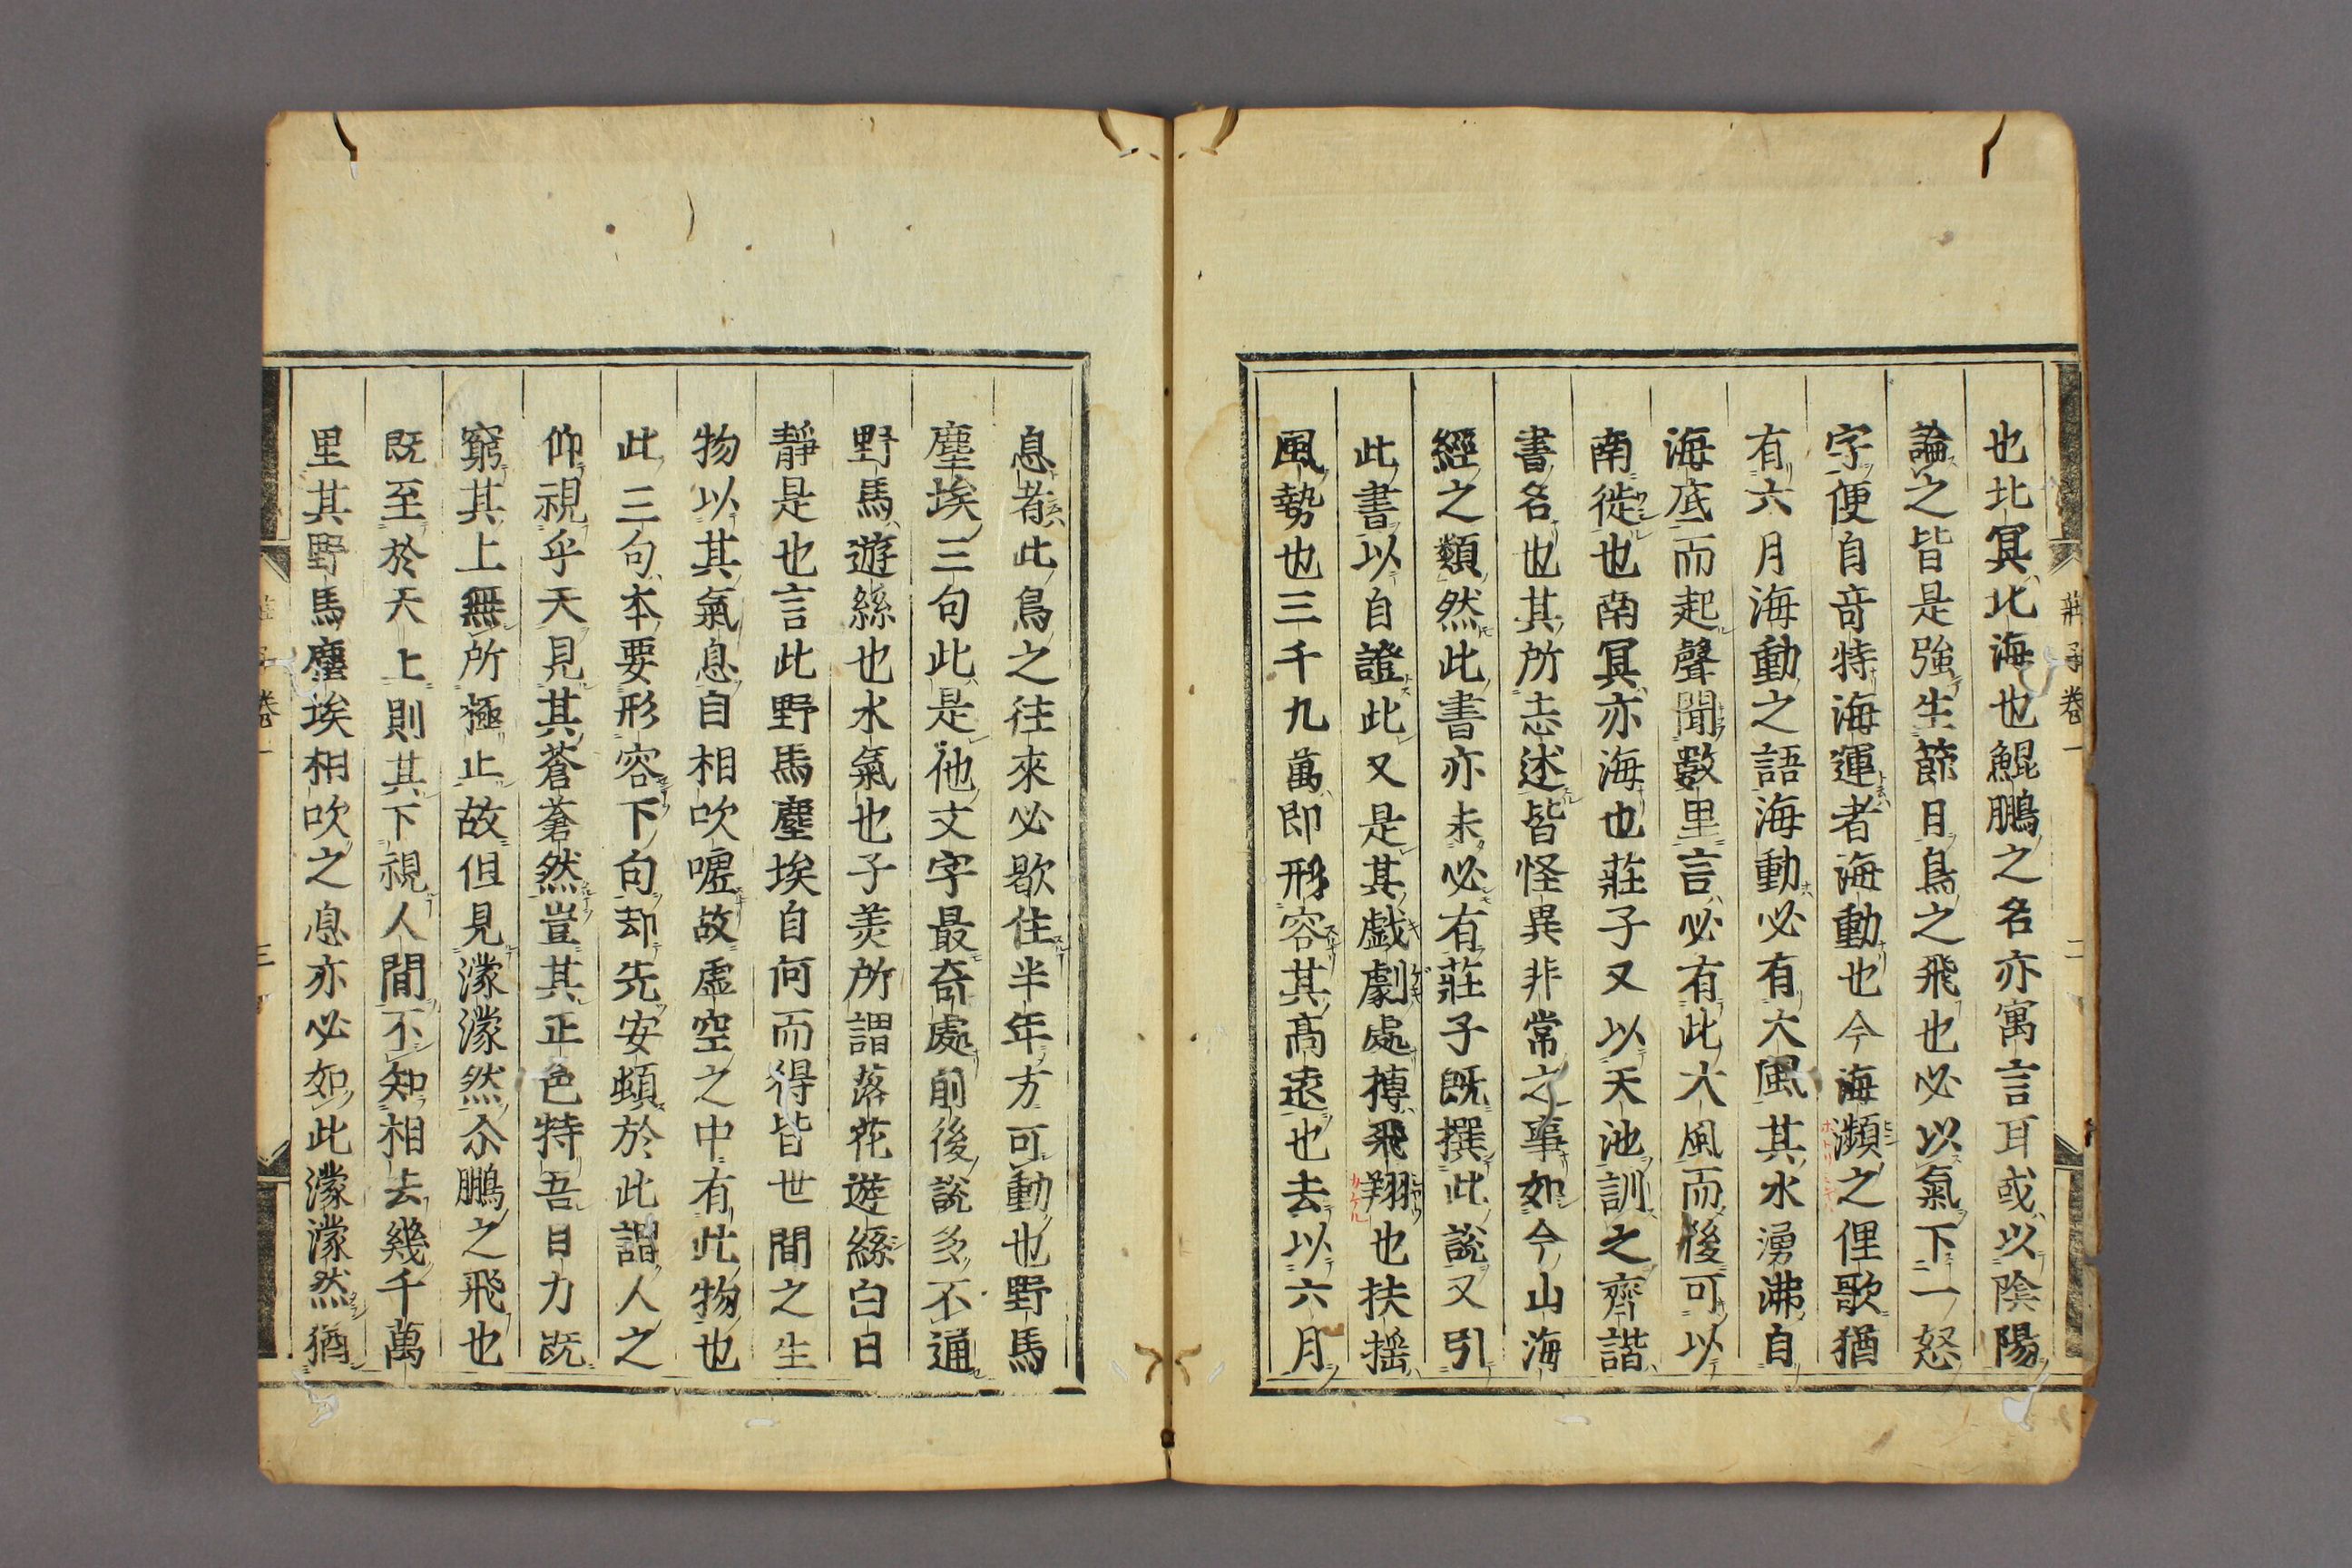 莊子卷一
二
也北冥北海也鯤鵬之名亦寓言耳或以陰陽
論之皆是強生節目鳥之飛也必以氣下一怒
字便自竒特海運者海動也今海瀕之俚歌猶
有六月海動之語海動必有大風其水湧沸自
海底而起聲聞數里言必有此大風而後可以
南徙也南冥亦海也莊子又以天池訓之齊諧
書名也其所志述皆怪異非常之事如今山海
經之類然此書亦未必有莊子既撰此說又引
此書以自證此又是其戲劇處摶飛翔也扶搖
風勢也三千九萬即形容其高遠也去以六月
息者此鳥之徃來必歇住半年方可動也野馬
塵埃三句此是他文字最奇處前後說多不通
野馬遊絲也水氣也子美所謂落花遊絲白日
靜是也言此野馬塵埃自何而得皆世間之生
物以其氣息自相吹噓故虛空之中有此物也
此三句本要形容下句却先安頓於此謂人之
仰視乎天見其蒼蒼然豈其正色特吾目力既
窮其上無所極止故但見濛濛然尒鵬之飛也
既至於天上則其下視人間不知相去幾千萬
里其野馬塵埃相吹之息亦必如此濛濛然猶
子卷一
三